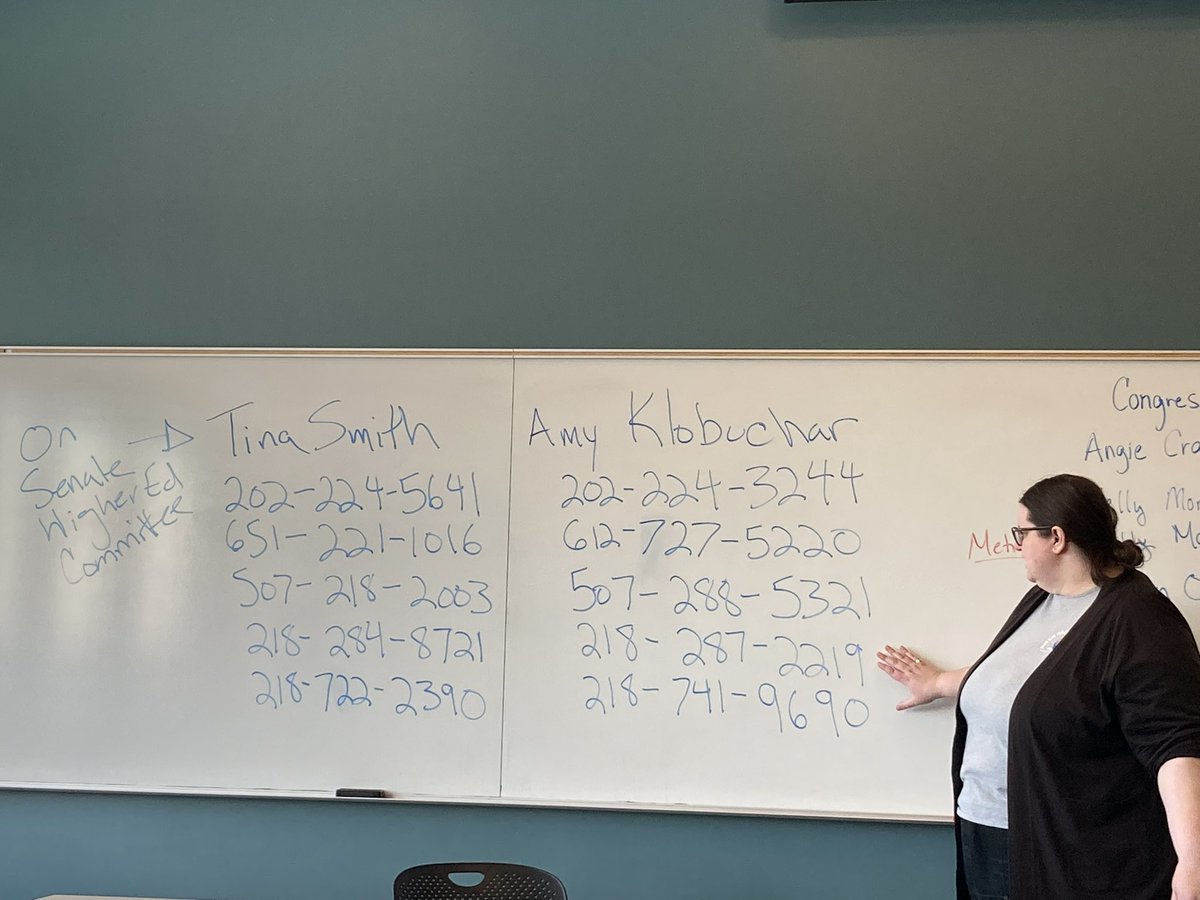 On
Senate
Higher Ed
Committee
Tina Smith
202-224-5641
651-221-1016
507-218-2003
218-284-8721
218-722-2390
Amy Klobuchar
202-224-3244
612-727-5220
507-288-5321
218-287-2219
218-741-9690
Congres
Angie Cra
elly Mor
Met